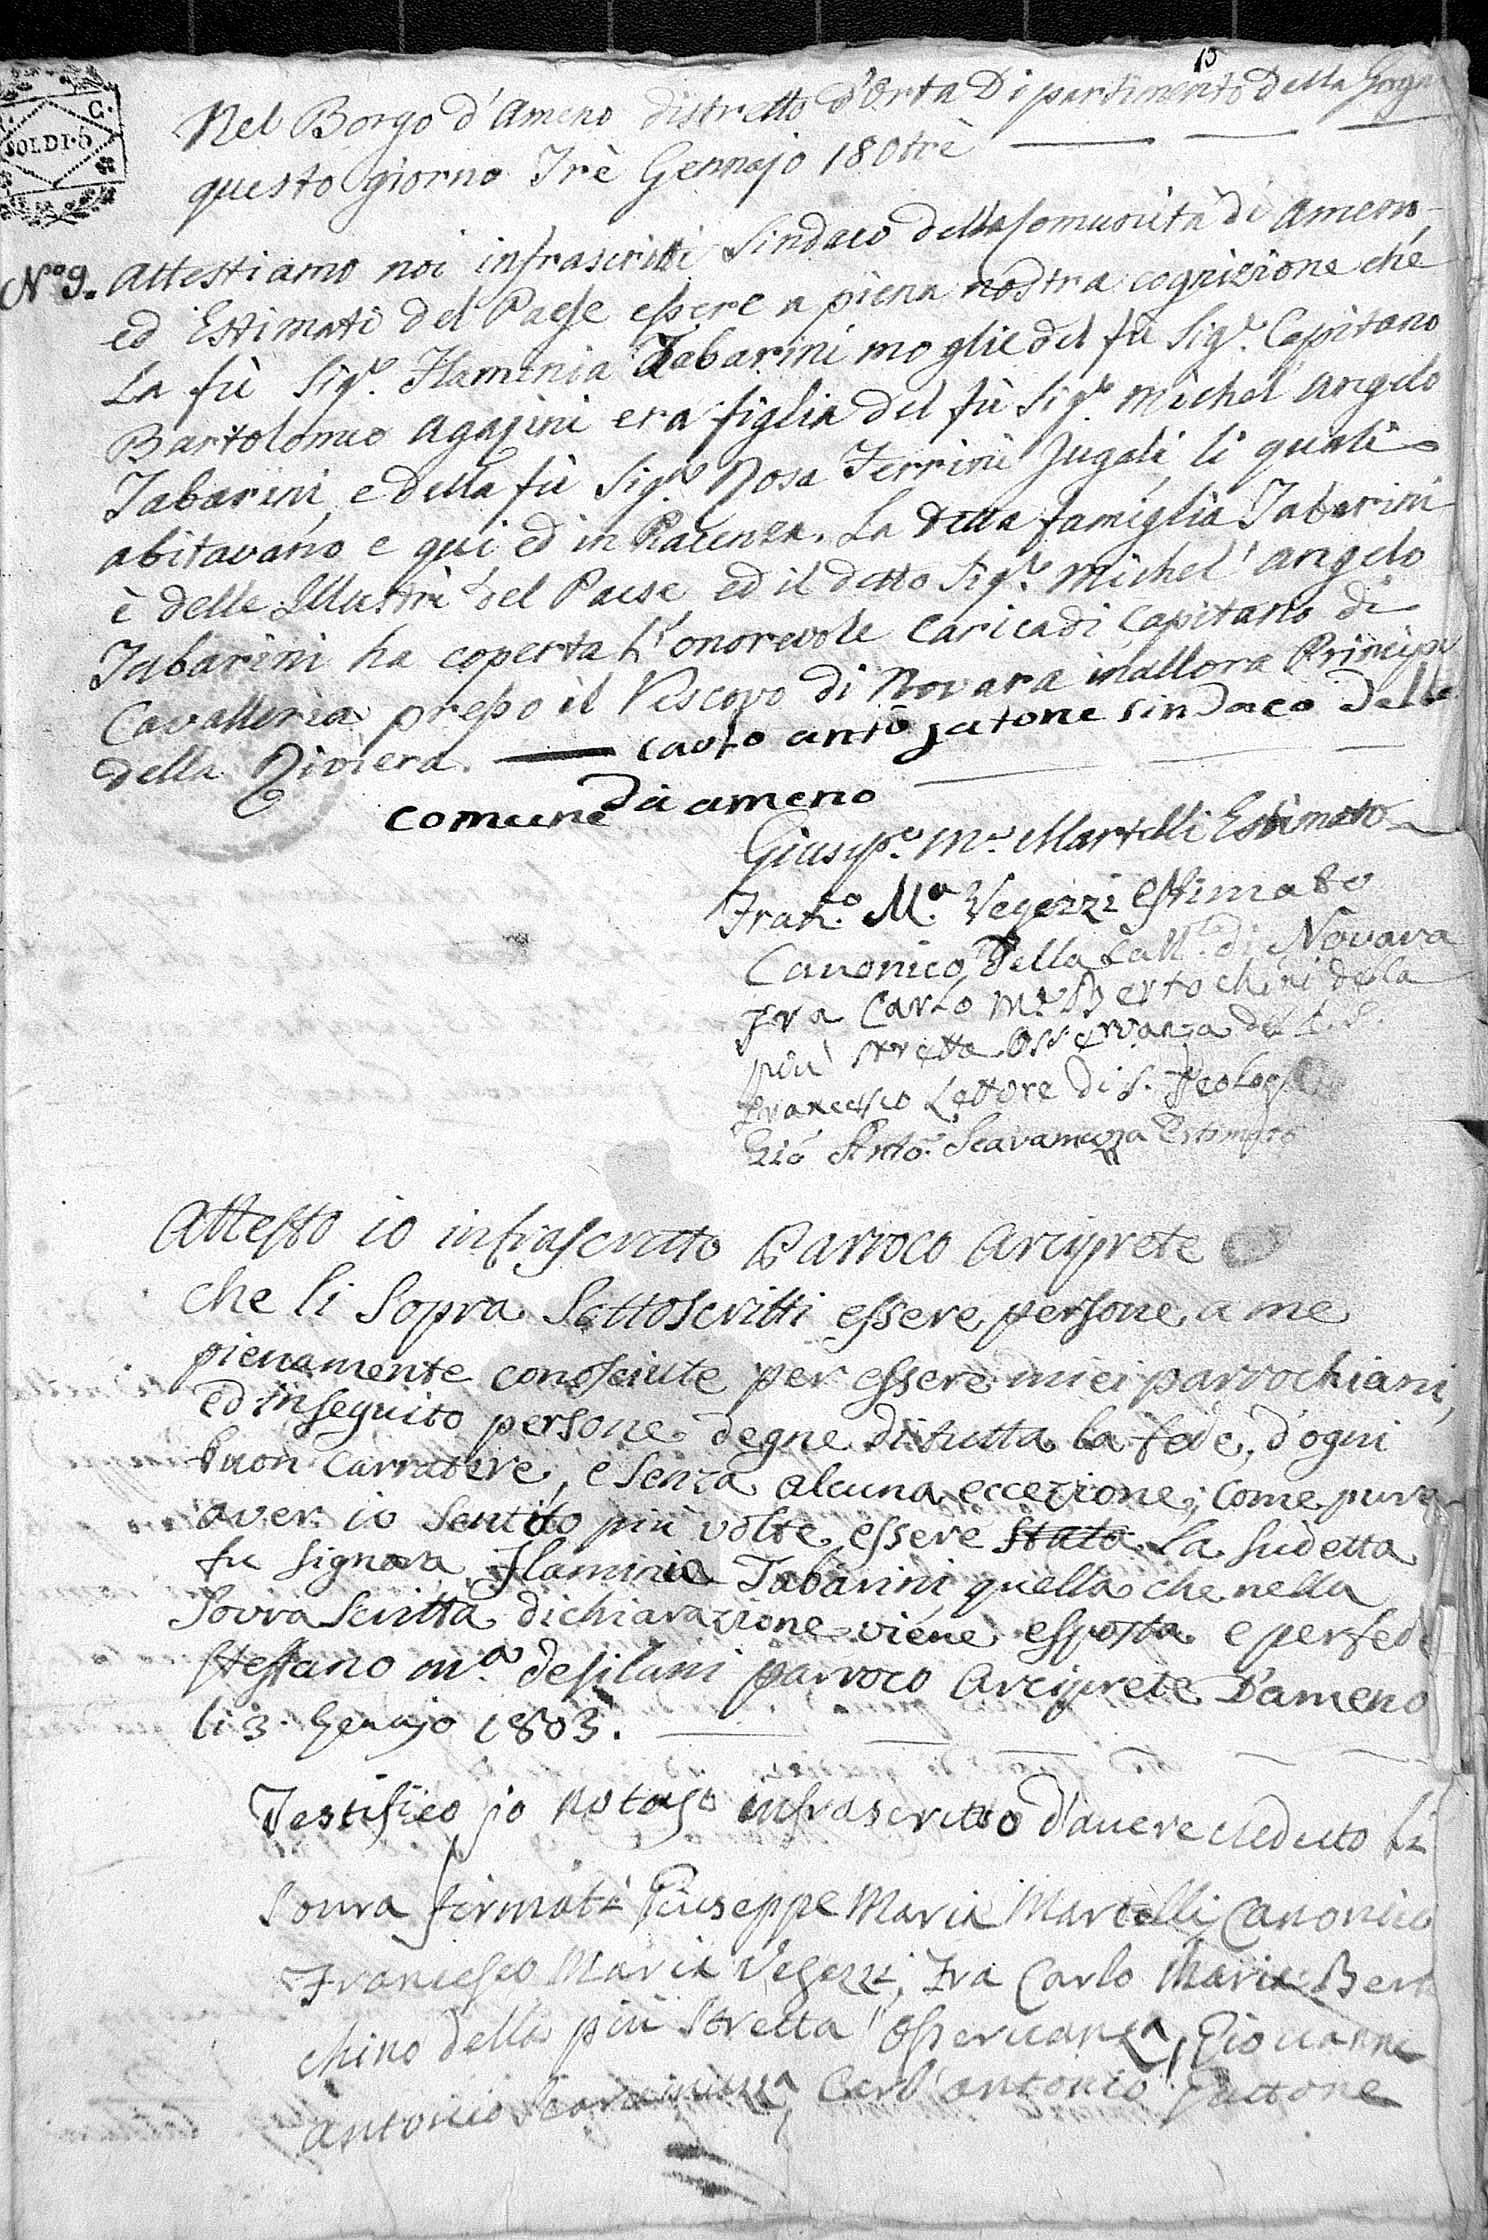 15
C.
SOLDI 6
Nel Borgo d'Ameno distretto d'Orta Dipartimento della Gogna
questo giorno Trè Gennajo 180trè
N.º 9. Attestiamo noi infrascritti Sindaco della Comunità di Ameno,
ed Estimati del Paese essere a piena nostra cognizione che
La fù Sig.ª Flaminia Tabarini moglie del fù Sig.r Capitano
Bartolomeo Agazini era figlia del fù Sig.r Michel' Angelo
Tabarini e della fù Sig.ª Rosa Ferrini Jugali li quali
abitavano e qui ed in Piacenza. La detta famiglia Tabarini
è delle Illustri del Paese ed il detto Sig.r Michel' Angelo
Tabarini ha coperta l'onorevole carica di Capitano di
Cavalleria presso il Vescovo di Novara inallora Principe
della Riviera. — Carlo antº jatone sindaco delle
comune di ameno
Giusep.e M.a Martelli Estimato
Fran.co M.a Vegezzi Estimato
Canonico della Catt.le di Novara
fra Carlo M.a Bertochini della
più stretta Osservanza di S.
Francesco Lettore di S. Teologia
Gio Anto. Scaramuzza Estimato
Attesto io infrascritto Parroco Arciprete
che li Sopra Sottoscritti essere persone a me
pienamente conosciute per essere miei parrochiani,
ed inseguito persone degne di tutta la fede, d'ogni
buon Carratere, e senza alcuna eccezione; come pure
aver io sentito più volte essere stata la sudetta
fu signora Flaminia Tabarini quella che nella
sovra scritta dichiarazione viene esposta e per fede
Steffano M.a desilani parroco Arciprete D'ameno
li 3. Genajo 1803.
Testifico jo Notajo infrascritto d'avere veduto li
sovra firmati Giuseppe Maria Martelli, Canonico
Francesco Maria Vegezzi, Fra Carlo Maria Berto
chino della più Stretta Osservanza, Giovanni
Antonio Scaramuzza, Carl'antonio Jattone